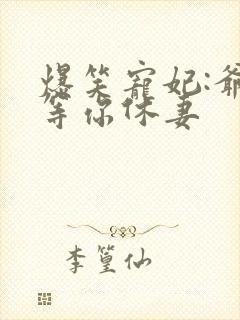 爆笑寵妃:爺
等你休妻
李篁仙